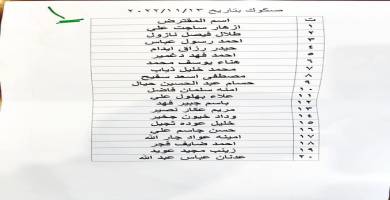 صكوك بتاريخ ٢٠٢٢/١١/١٣
ت اسم المقترض
١ ازهار ساجت علي
٢ طلال فيصل نازول
٣ احمد رسول عباس
٤ حيدر رزاق ايدام
٥ احمد فهد دعمير
٦ هناء يوسف محمد
٧ محمد خليل ذياب
٨ مصطفى اسعد سفيح
٩ حسام عبد الحسين حيال
١٠ امنه سلمان فاضل
١١ علاء بهلول علي
١٢ باسم جبير فهد
١٣ مريم عكار نصير
١٤ وداد خيون جخير
١٥ خليل عوده ثجيل
١٦ حسن جاسم علي
١٧ امينه عواد جار الله
١٨ احمد ضايف فجر
١٩ زينب مجيد عويد
٢٠ عدنان عباس عبد الله